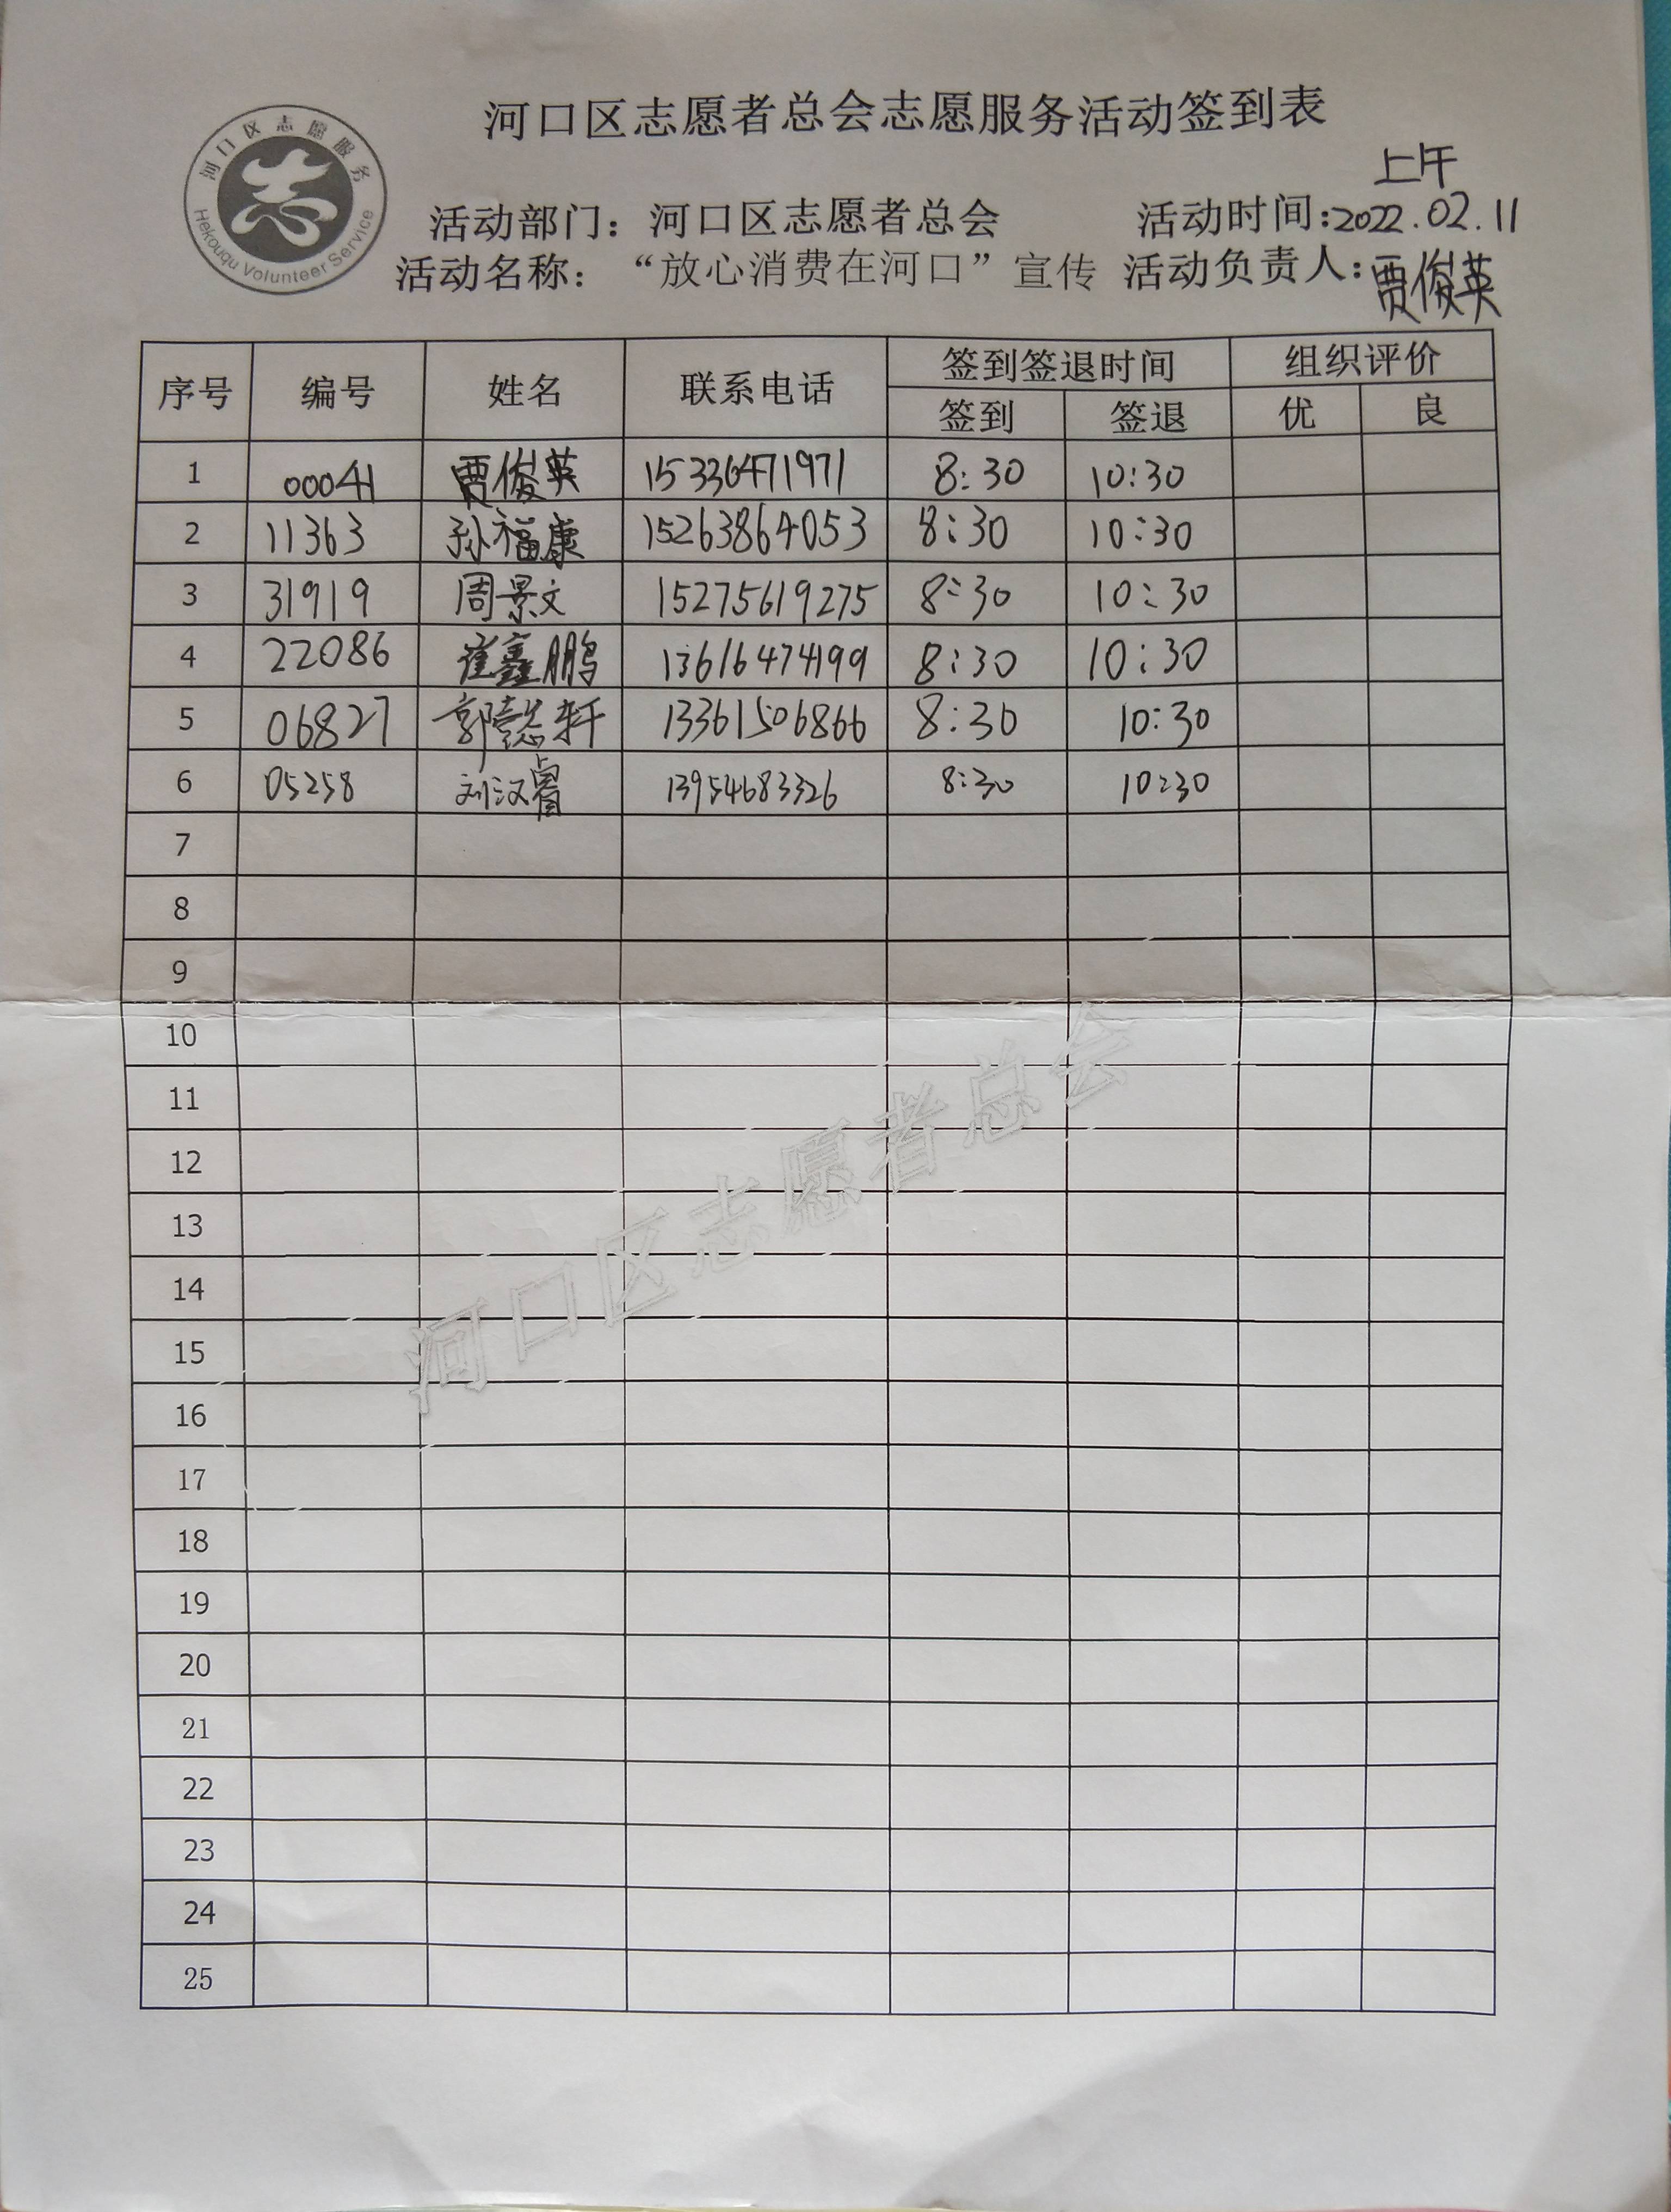 河口区志愿者总会志愿服务活动签到表
河口区志愿服务
Hekouqu Volunteer Service
上午
活动部门：河口区志愿者总会 活动时间：2022.02.11
活动名称：“放心消费在河口”宣传 活动负责人：贾俊英
序号 编号 姓名 联系电话 签到签退时间 组织评价
签到 签退 优 良
1 00041 贾俊英 15336471971 8:30 10:30
2 11363 孙福康 15263864053 8:30 10:30
3 31919 周景文 15275619275 8:30 10:30
4 22086 崔鑫鹏 13616474199 8:30 10:30
5 06827 郭懿轩 13361506866 8:30 10:30
6 05258 刘汉睿 13954683326 8:30 10:30
7
8
9
10
11
12
13
14
15
16
17
18
19
20
21
22
23
24
25
河口区志愿者总会